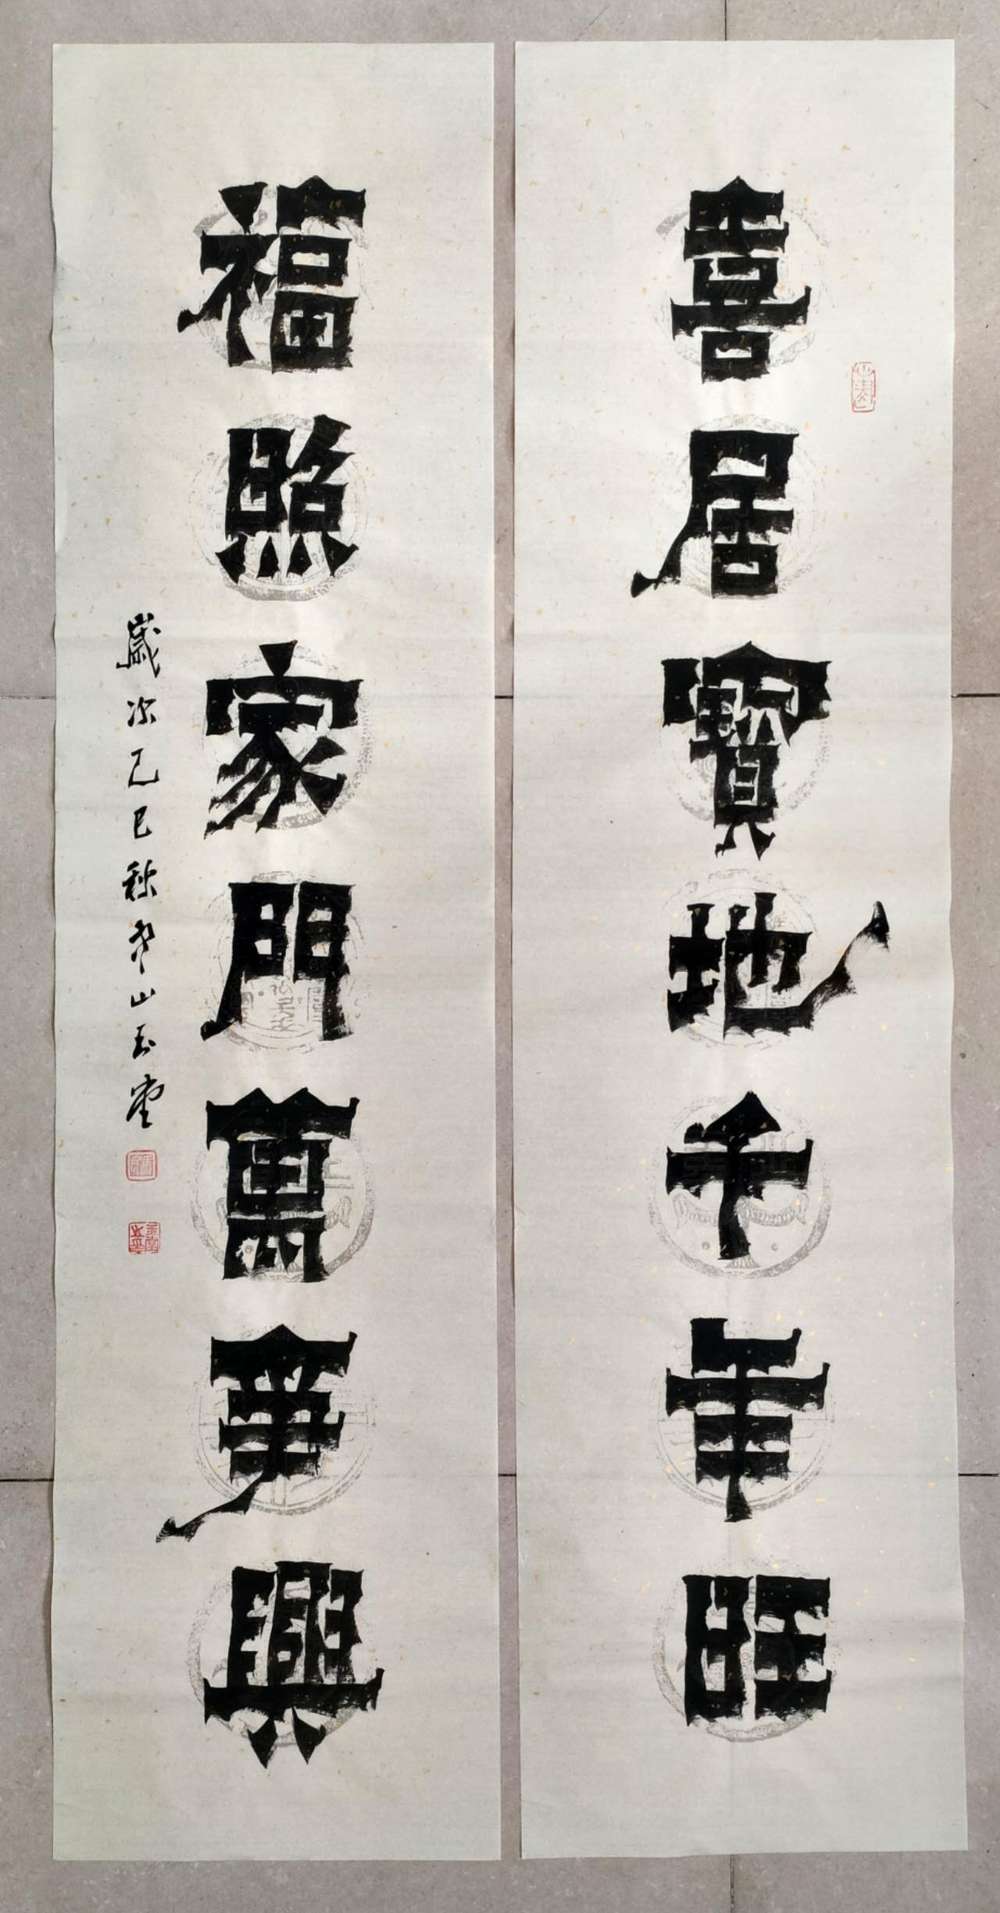 喜居寶地千年旺
福照家門萬事興
歲次乙巳秋 山玉堂